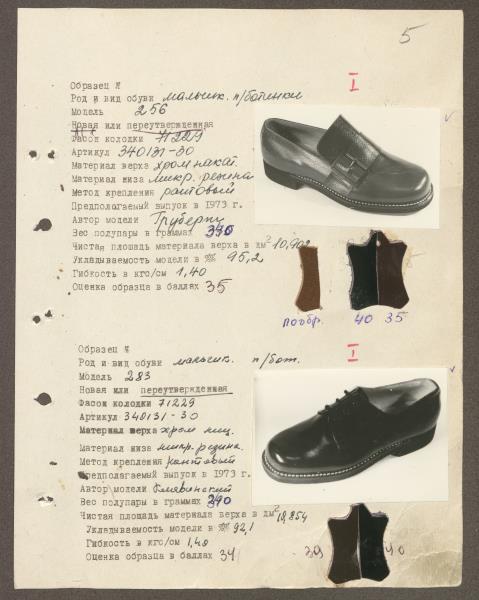 5
I
Образец №
Род и вид обуви мальчик. п/ботинки
Модель 256
Новая или переутвержденная
Фасон колодки 71229
Артикул 340131-30
Материал верха хром накат.
Материал низа микр. резина
Метод крепления рантовый
Предполагаемый выпуск в 1973 г.
Автор модели
Вес полупары в граммах 390
Чистая площадь материала верха в дм² 10,902
Укладываемость модели в % 95,2
Гибкость в кгс/см 1,40
Оценка образца в баллах 35
40 35
I
Образец №
Род и вид обуви мальчик. п/бот.
Модель 283
Новая или переутвержденная
Фасон колодки 71229
Артикул 340131-30
Материал верха хром
Материал низа микр. резина.
Метод крепления рантовый
Предполагаемый выпуск в 1973 г.
Автор модели
Вес полупары в граммах 390
Чистая площадь материала верха в дм² 10,854
Укладываемость модели в % 92,1
Гибкость в кгс/см 1,40
Оценка образца в баллах 34
39 40